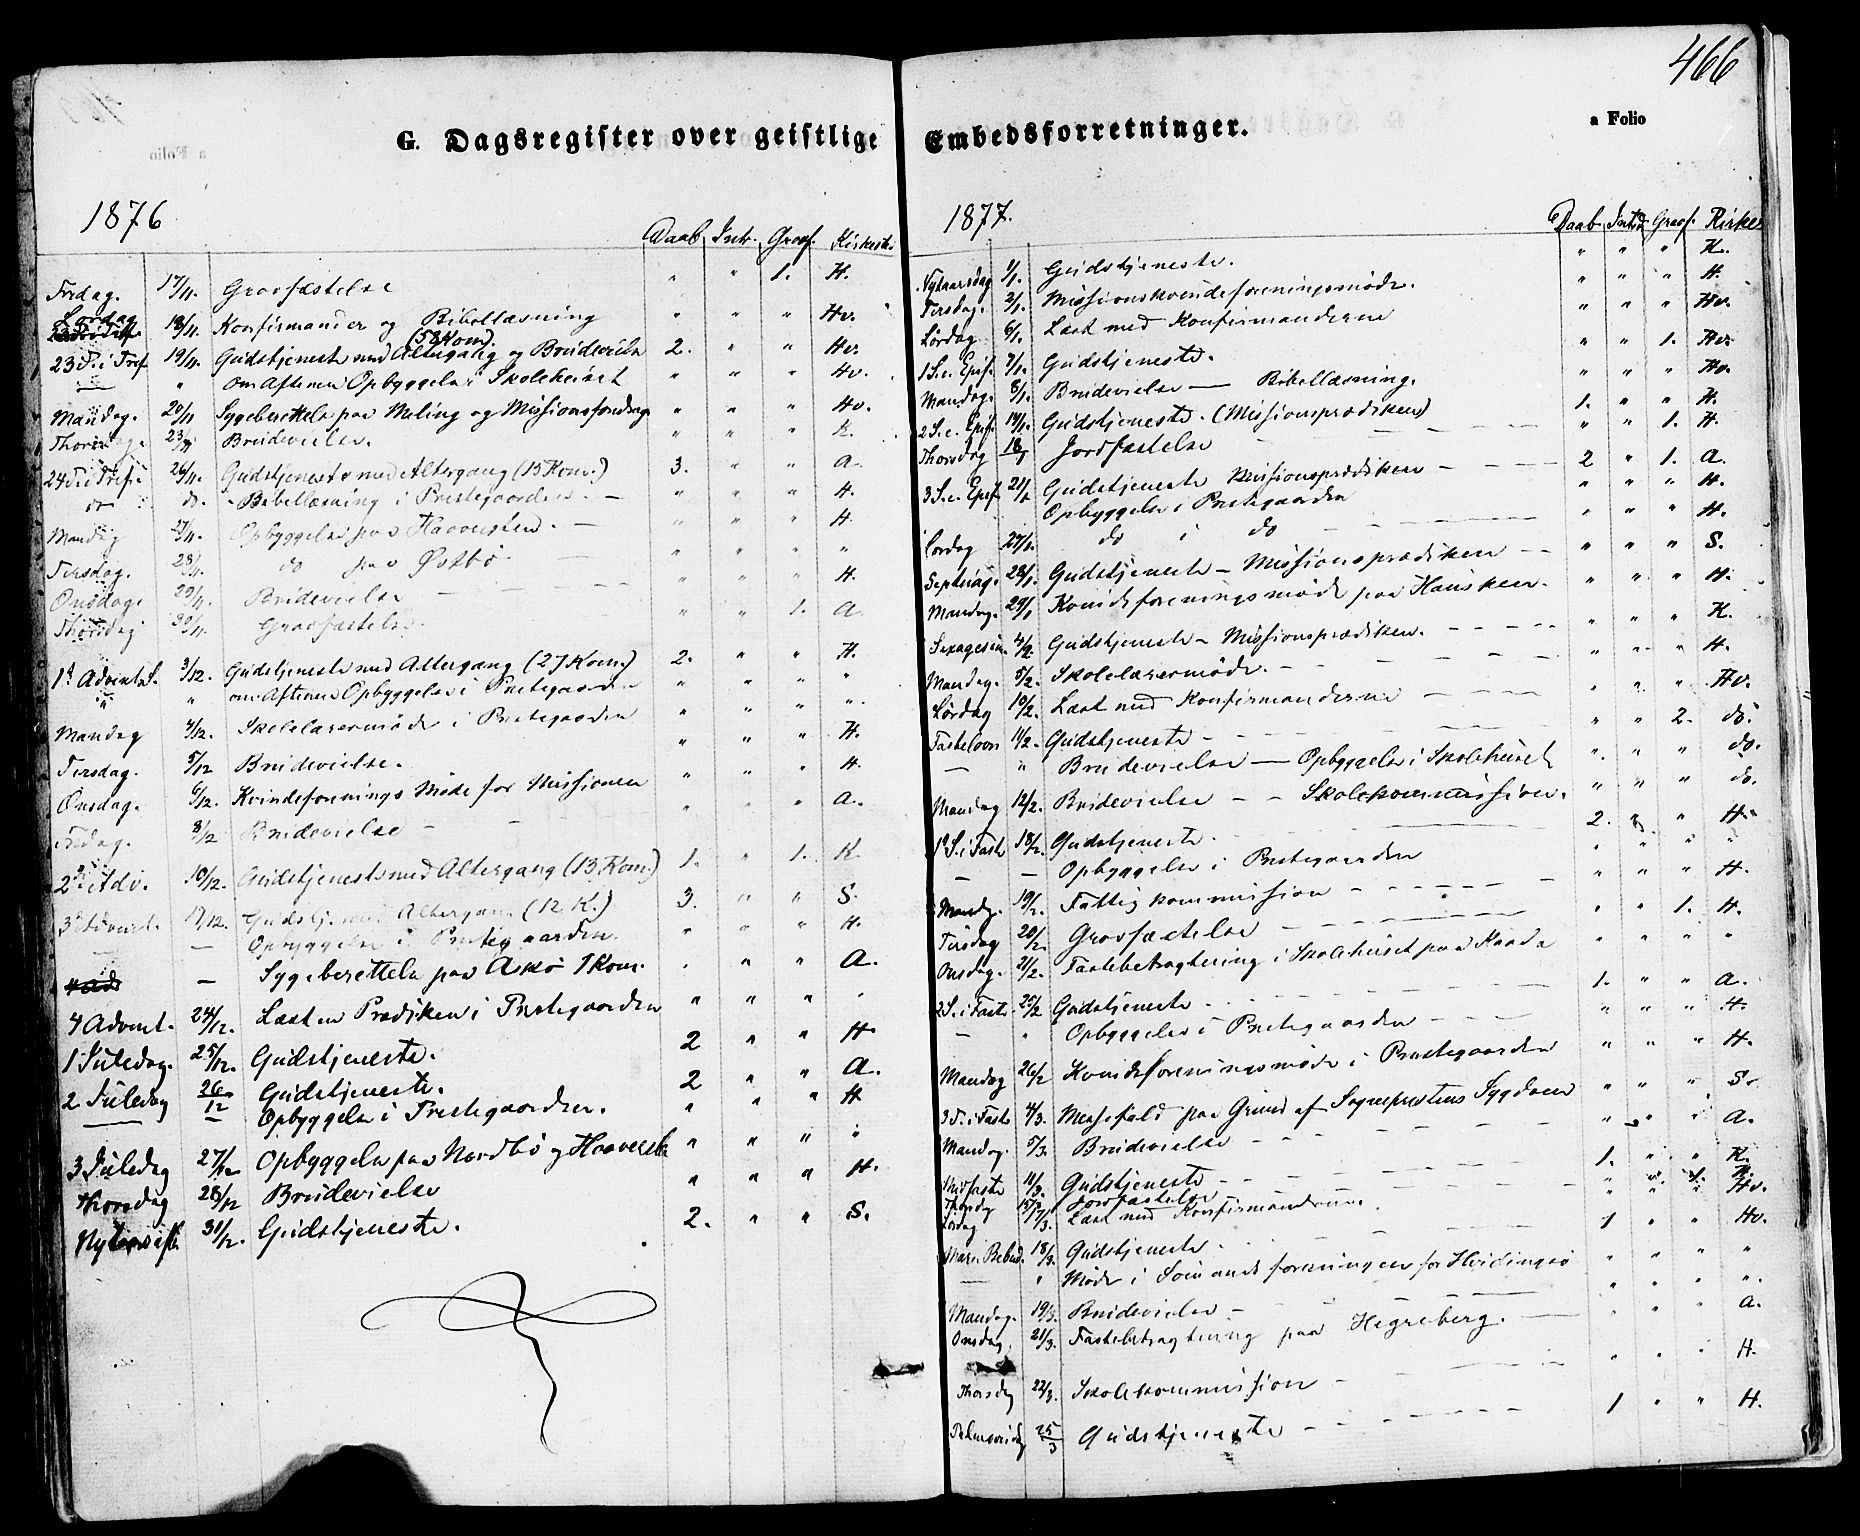 466
G. Dagsregister over geistlige Embedsforretninger.
a Folio
1876
Daab Intr. Gravf. Kirkest.
Fredag. 17/11. Gravfæstelse " " 1. H.
Lørdag 18/11. Konfirmander og Bibellæsning " " " Hv.
(58 Kom.)
23 S. i Tref. 19/11. Gudstjeneste med Altergang og Brudevielse 2. " " Hv.
— " om Aftenen Opbyggelse i Skolehuset " " " Hv.
Mandag. 20/11 Sygeberettelse paa Meling og Missionsforedrag " " " Hv.
Thorsdag. 23/11 Brudevielse. " " " K.
24 S. i Tref. 26/11. Gudstjeneste med Altergang (15 Kom.) 3. " " A.
do do. - Bibellæsning i Prestegaarden - " " " H.
Mandag 27/11. Opbyggelse paa Haaversten - " " " H.
Tirsdag. 28/11. do paa Østbø - " " " "
Onsdag. 29/11. Brudevielse - - " " " H.
Thorsdag 30/11. Gravfæstelse. " " 1. A
1ste Advents S. 3/12. Gudstjeneste med Altergang (27 Kom.) 2. " " H.
" " om Aftenen Opbyggelse i Prestegaarden " " " "
Mandag 4/12. Skolelærermøde i Prestegaarden " " " "
Tirsdag. 5/12 Brudevielse. " " " H.
Onsdag. 6/12. Kvindeforenings Møde for Missionen " " " H.
Fredag. 8/12 Brudevielse - " " " A.
2 S. i Adv. 10/12. Gudstjeneste med Altergang (13 Kom.) 1. " 1. K.
3 S. i Advent. 17/12. Gudstj. med Altergang (12 K.) 3. " " S.
— Opbyggelse i Prestegaarden " " " H.
4 Ad — Sygeberettelse paa Askø 1 Kom. " " " A.
4 Advent. 24/12. Læst en Prædiken i Prestegaarden " " " "
1 Juledag. 25/12. Gudstjeneste. 2 " " H.
2 Juledag 26/12 Gudstjeneste. 2 " " A.
— — Opbyggelse i Prestegaarden. " " " H
3 Juledag 27/12 Opbyggelse paa Nordbø og Haaversten " " " "
Thorsdag 28/12 Brudevielse " " " H.
31/12. Gudstjeneste. 2. " " S.
1877.
Daab Introd. Gravf. Kirke
Nytaarsdag 1/1. Gudstjeneste. " " " K.
Tirsdag. 2/1. Missionskvindeforeningsmøde. " " " H.
Lørdag 6/1. Læst med Konfirmanderne " " " Hv.
1 S. e. Epif. 7/1. Gudstjeneste. " " 1. Hv.
Mandag. 8/1. Brudevielse — Bibellæsning. " " " Hv.
2 S. e. Epif. 14/1. Gudstjeneste. (Missionsprædiken) 1. " " K.
Thorsdag 18/1 Jordfæstelse " " 1. H.
3 S. e. Epif. 21/1 Gudstjeneste Missionsprædiken - - - 2 " 1. A.
Opbyggelse i Prestegaarden " " " H.
Lørdag 27/1. do i do " " " H.
Septuag. 28/1. Gudstjeneste - Missionsprædiken - - " " " S.
Mandag. 29/1 Kvindeforeningsmøde paa Hausken. " " " H.
Sexagesim. 4/2. Gudstjeneste - Missionsprædiken. - - - " " " K.
Mandag. 5/2. Skolelærermøde. - - " " " H.
Lørdag 10/2. Læst med Konfirmanderne - " " " Hv.
Fastelavn 11/2. Gudstjeneste - - - " " 2. do.
— " Brudevielse — Opbyggelse i Skolehuset " " " do.
Mandag 12/2. Brudevielse - - Skolekommission. " " " do.
1ste S. i Faste 18/2. Gudstjeneste. 2. " " H.
— — Opbyggelse i Prestegaarden " " " "
Mandag. 19/2. Fattigkommission - - - " " " H.
Tirsdag 20/2. Gravfæstelse - - " " 1. H.
Onsdag. 21/2. Fastebetragtning i Skolehuset paa Kaada " " " "
2 S. i Faste 25/2 Gudstjeneste - - - 1. " " A.
— " Opbyggelse i Prestegaarden - - " " " H.
Mandag 26/2 Kvindeforeningsmøde i Prestegaarden " " " H.
3 S. i Faste 4/3. Messefald paa Grund af Sogneprestens Sygdom " " " S.
Mandag. 5/3. Brudevielse - - - " " " A.
Midfaste 11/3. Gudstjeneste - - - 1. " " K.
Thorsdag 15/3 Jordfæstelse " " 1. K.
Lørdag 17/3. Læst med Konfirmanderne. " " " Hv.
Mari Bebud. 18/3. Gudstjeneste - 1 " " Hv.
— " Møde i Sømandsforeningen for Hvidingsø " " " "
Mandag. 19/3. Brudevielse - " " " "
Onsdag, 21/3. Fastebetragtning paa Hegreberg. — " " " A.
Thorsdag 22/3. Skolekommission - " " " H.
Palmesøndag 25/3 Gudstjeneste - - - 1 " " H.